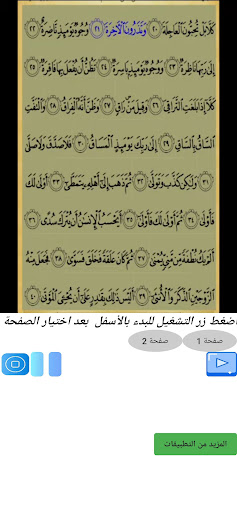 كَلَّا بَلْ تُحِبُّونَ ٱلْعَاجِلَةَ ٢٠ وَتَذَرُونَ ٱلْآخِرَةَ ٢١ وُجُوهٌ يَوْمَئِذٍ نَّاضِرَةٌ ٢٢
إِلَىٰ رَبِّهَا نَاظِرَةٌ ٢٣ وَوُجُوهٌ يَوْمَئِذٍ بَاسِرَةٌ ٢٤ تَظُنُّ أَن يُفْعَلَ بِهَا فَاقِرَةٌ ٢٥
كَلَّا إِذَا بَلَغَتِ ٱلتَّرَاقِيَ ٢٦ وَقِيلَ مَنْ رَاقٍ ٢٧ وَظَنَّ أَنَّهُ ٱلْفِرَاقُ ٢٨ وَٱلْتَفَّتِ
ٱلسَّاقُ بِٱلسَّاقِ ٢٩ إِلَىٰ رَبِّكَ يَوْمَئِذٍ ٱلْمَسَاقُ ٣٠ فَلَا صَدَّقَ وَلَا صَلَّىٰ
٣١ وَلَٰكِن كَذَّبَ وَتَوَلَّىٰ ٣٢ ثُمَّ ذَهَبَ إِلَىٰ أَهْلِهِ يَتَمَطَّىٰ ٣٣ أَوْلَىٰ لَكَ
فَأَوْلَىٰ ٣٤ ثُمَّ أَوْلَىٰ لَكَ فَأَوْلَىٰ ٣٥ أَيَحْسَبُ ٱلْإِنسَٰنُ أَن يُتْرَكَ سُدًى ٣٦
أَلَمْ يَكُ نُطْفَةً مِّن مَّنِيٍّ يُمْنَىٰ ٣٧ ثُمَّ كَانَ عَلَقَةً فَخَلَقَ فَسَوَّىٰ ٣٨ فَجَعَلَ مِنْهُ
ٱلزَّوْجَيْنِ ٱلذَّكَرَ وَٱلْأُنثَىٰ ٣٩ أَلَيْسَ ذَٰلِكَ بِقَٰدِرٍ عَلَىٰ أَن يُحْـِۧيَ ٱلْمَوْتَىٰ ٤٠
اضغط زر التشغيل للبدء بالأسفل بعد اختيار الصفحة
صفحة 1
صفحة 2
المزيد من التطبيقات